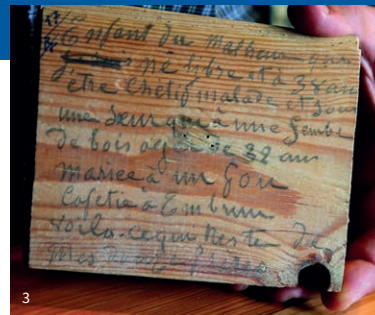 Enfant du malheur que
né libre et à 38 ans
d'être chétif malade et sour
une sœur qui a une jambe
de bois agée de 32 ans
mariée à un fou
Cafetié à Embrun
voila ce qui reste de
mes douze frères
3